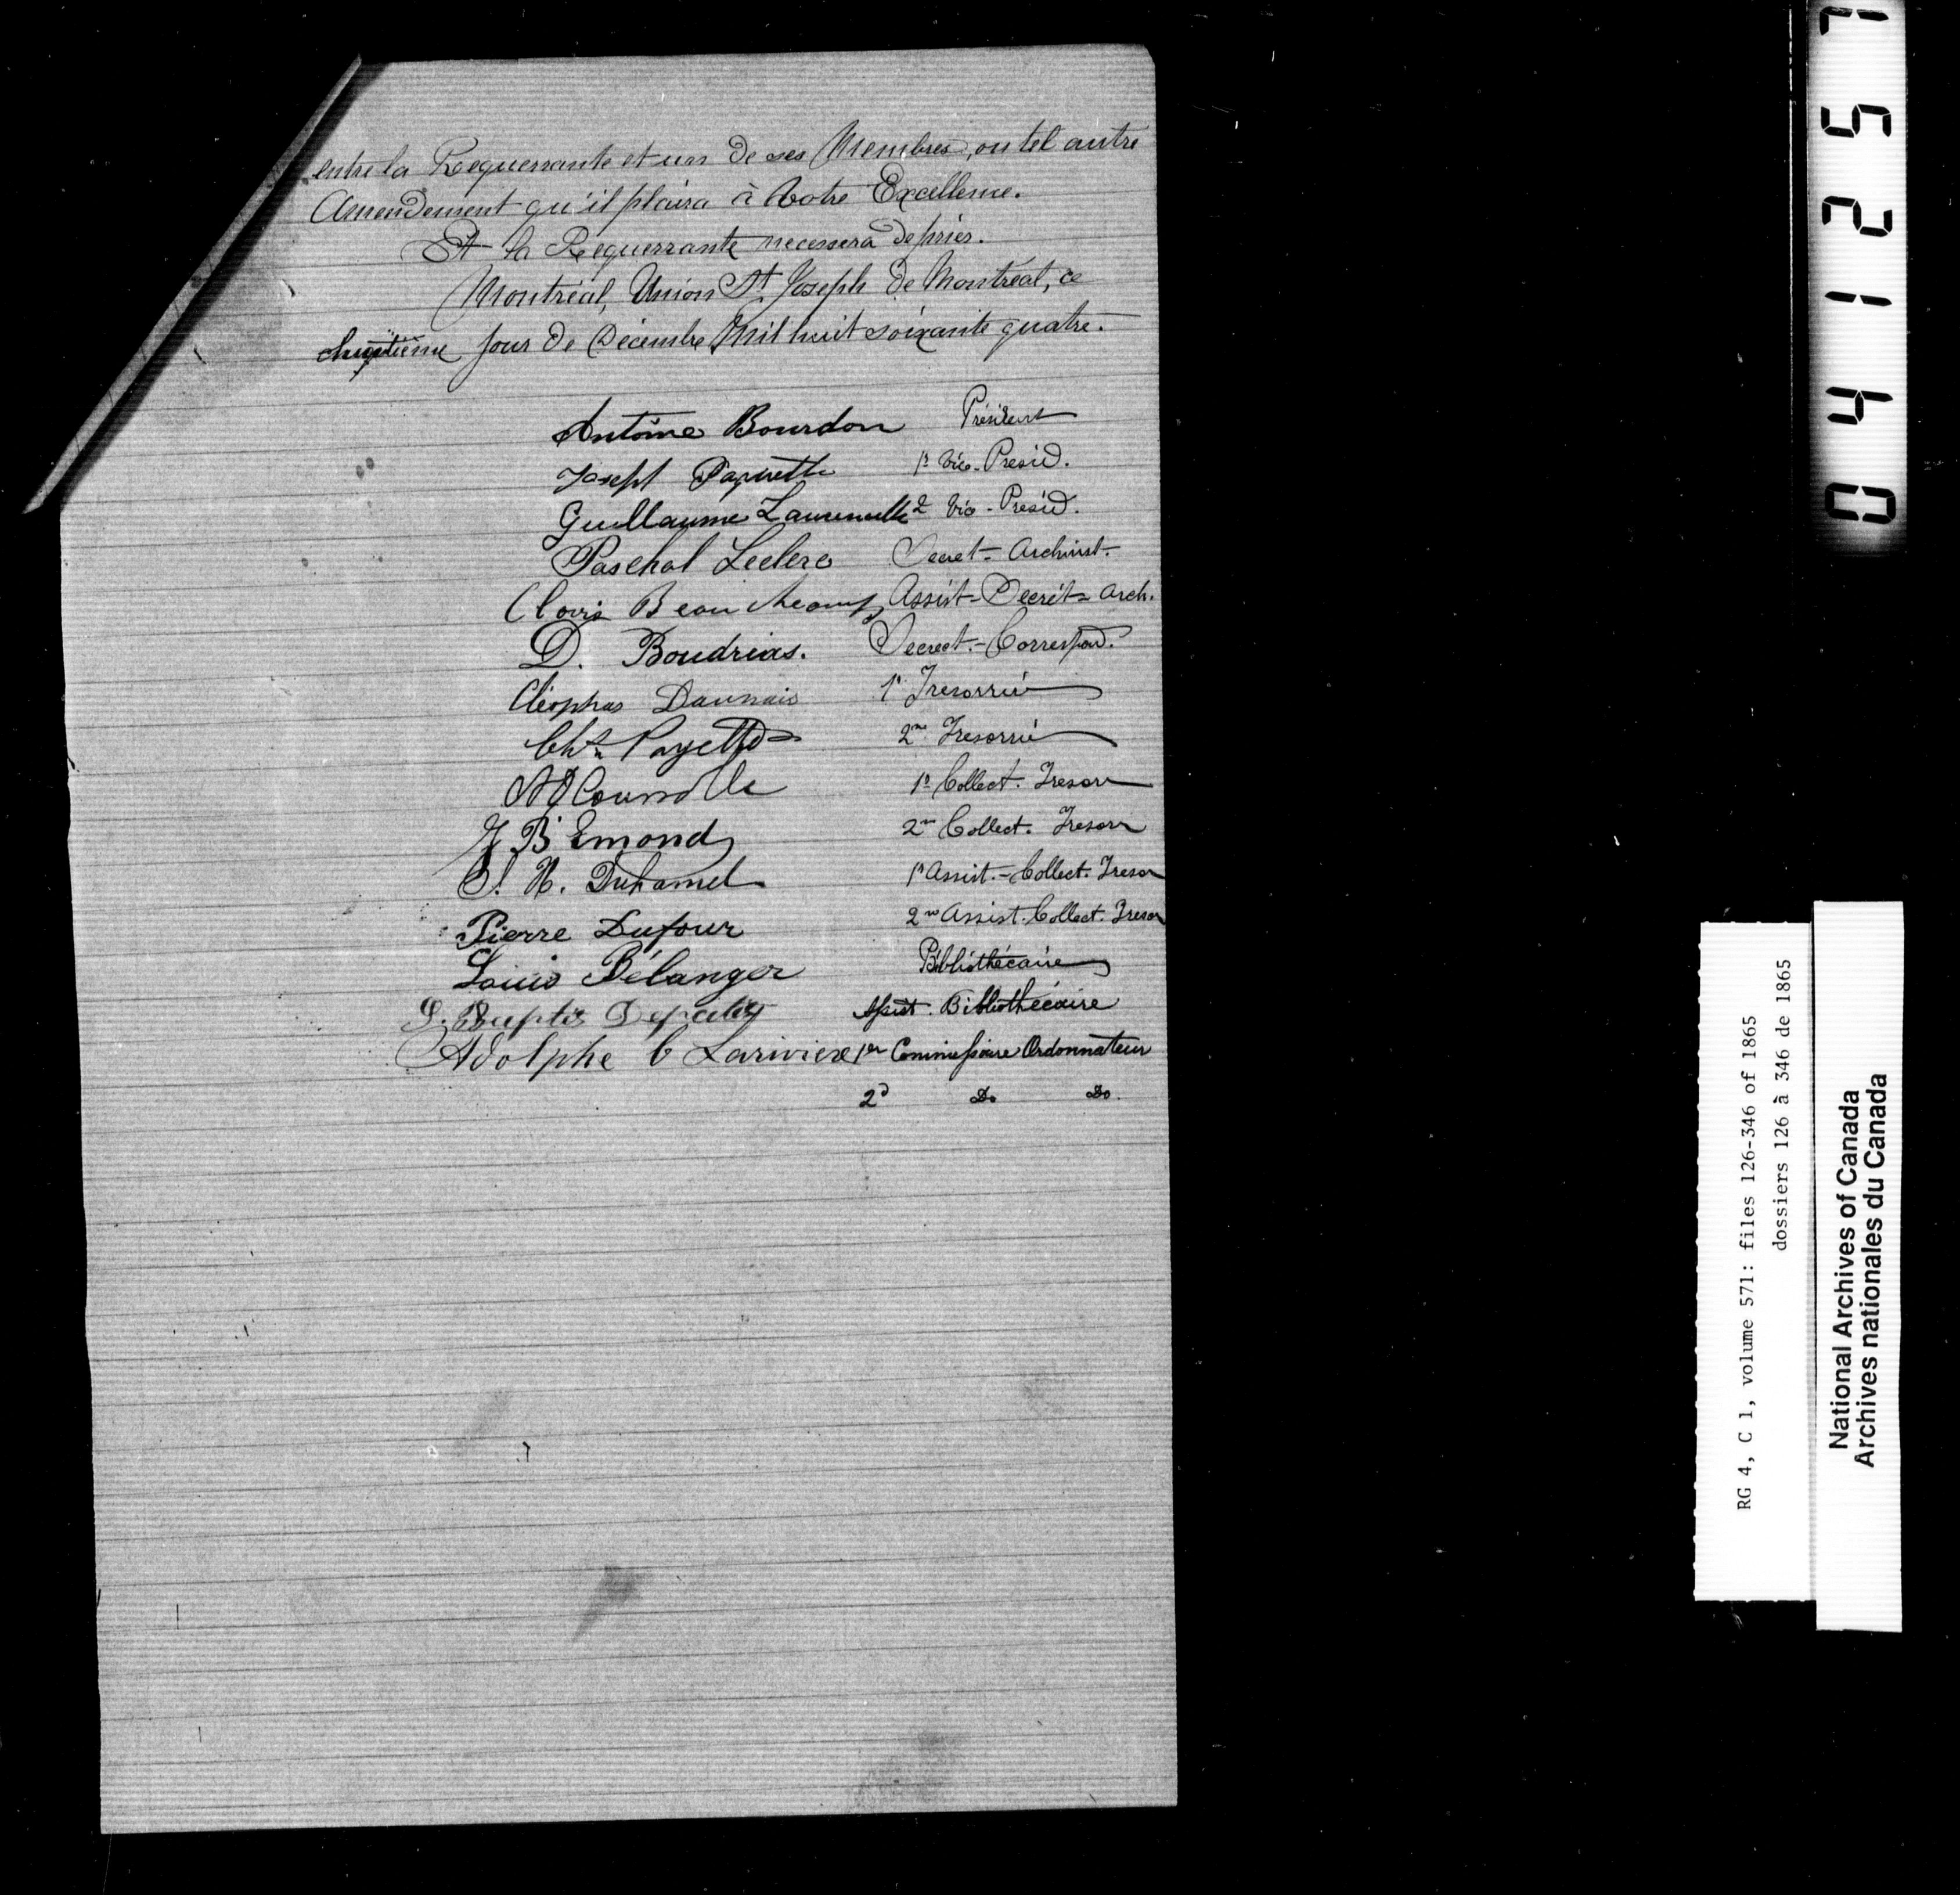 entre la Requerrante et un de ses Membres, ou tel autre
Amendement qu'il plaira à Votre Excellence.
Et la Requerrante necessera de prier.
Montréal, Union St Joseph de Montréal, ce
jour de Décembre Mil huit soixante quatre.
Antoine Bourdon Président
Joseph Paquette 1r Vice-Presid.
Guillaume 2 Vice-Presid.
Paschal Leclerc Secret-Archivist-
Clovis Beauchamp Assist-Secrét- Arch.
D. Boudrias. Secrect.-Correspond.
Cléophas Daunais 1r Tresorrié
Chs Payette 2me Tresorrié
1r Collect. Tresor
J. B. Emond 2me Collect. Tresor
S. H. Duhamel 1r Assist.-Collect. Tresor
Pierre Dufour 2me Assist. Collect. Tresor
Louis Bélanger Bibliothécaire
Assist. Bibliothécaire
Adolphe C Lariviere 1er Commissaire Ordonnateur
2d Do Do.
0 4 1 2 5 7
RG 4, C 1, volume 571: files 126-346 of 1865
dossiers 126 à 346 de 1865
National Archives of Canada
Archives nationales du Canada